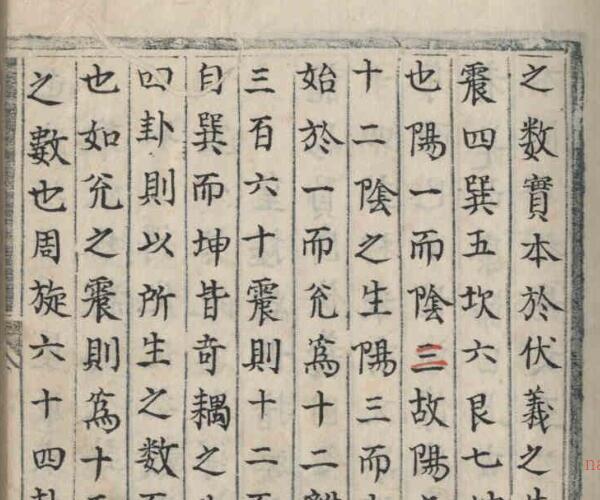 之數實本於伏羲之
震四巽五坎六艮七
也陽一而陰三故陽
十二陰之生陽三而
始於一而兊為十二
三百六十震則十二
自巽而坤皆奇耦之
四卦則以所生之數
也如兊之震則為十
之數也周旋六十四卦
na